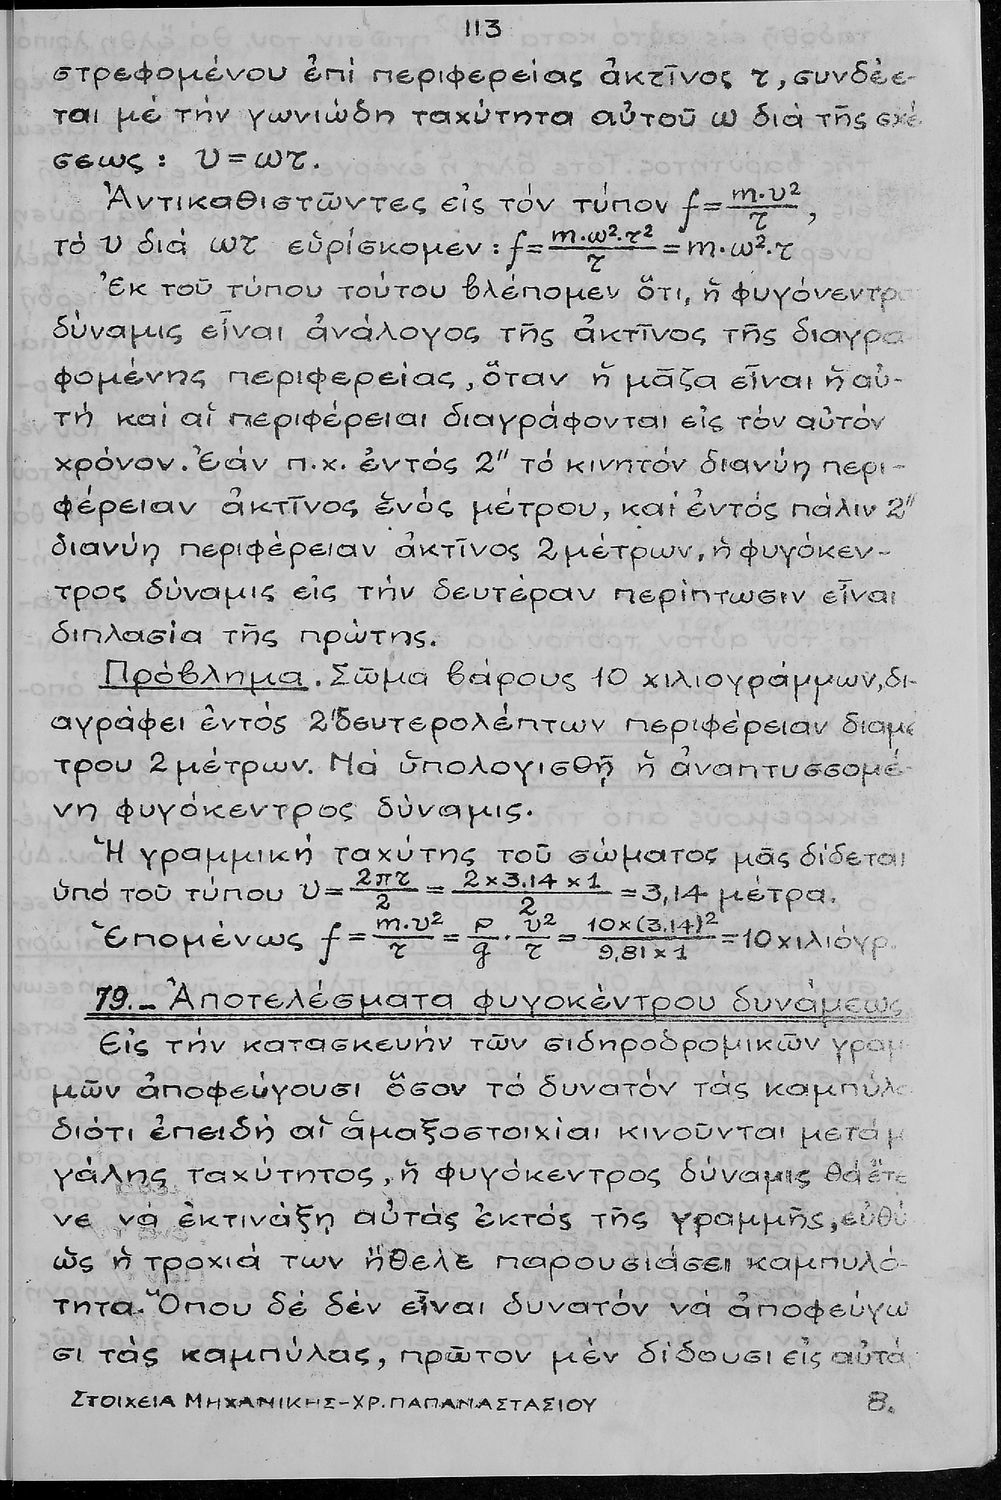 113
στρεφομένου ἐπί περιφερείας ἀκτῖνος τ, συνδέε-
ται μέ τήν γωνιώδη ταχύτητα αὐτοῦ ω διά τῆς σχέ
σεως : υ = ωτ.
Ἀντικαθιστῶντες εἰς τόν τύπον f = m·υ²/τ ,
τό υ διά ωτ εὑρίσκομεν : f = m·ω²·τ²/τ = m·ω²·τ
Ἐκ τοῦ τύπου τούτου βλέπομεν ὅτι, ἡ φυγόνεντρο
δύναμις εἶναι ἀνάλογος τῆς ἀκτῖνος τῆς διαγρα
φομένης περιφερείας, ὅταν ἡ μᾶζα εἶναι ἡ αὐ-
τή καί αἱ περιφέρειαι διαγράφονται εἰς τόν αὐτόν
χρόνον. Ἐάν π.χ. ἐντός 2" τό κινητόν διανύῃ περι-
φέρειαν ἀκτῖνος ἑνός μέτρου, καί ἐντός πάλιν 2"
διανύῃ περιφέρειαν ἀκτῖνος 2 μέτρων, ἡ φυγόκεν-
τρος δύναμις εἰς τήν δευτέραν περίπτωσιν εἶναι
διπλασία τῆς πρώτης.
Πρόβλημα. Σῶμα βάρους 10 χιλιογράμμων, δι-
αγράφει ἐντός 2"δευτερολέπτων περιφέρειαν διαμέ
τρου 2 μέτρων. Νά ὑπολογισθῇ ἡ ἀναπτυσσομέ-
νη φυγόκεντρος δύναμις.
Ἡ γραμμική ταχύτης τοῦ σώματος μᾶς δίδεται
ὑπό τοῦ τύπου υ = 2πτ/2 = 2×3.14×1/2 = 3,14 μέτρα.
Ἑπομένως f = m·υ²/τ = P/g · υ²/τ = 10×(3.14)²/9,81×1 = 10 χιλιόγρ.
79.– Ἀποτελέσματα φυγοκέντρου δυνάμεως
Εἰς τήν κατασκευήν τῶν σιδηροδρομικῶν γραμ-
μῶν ἀποφεύγουσι ὅσον τό δυνατόν τάς καμπύλα
διότι ἐπειδή αἱ ἁμαξοστοιχίαι κινοῦνται μετά μ
γάλης ταχύτητος, ἡ φυγόκεντρος δύναμις θά ἔτε
νε νά ἐκτινάξῃ αὐτάς ἐκτός τῆς γραμμῆς, εὐθύ
ὡς ἡ τροχιά των ἤθελε παρουσιάσει καμπυλό-
τητα. Ὅπου δέ δέν εἶναι δυνατόν νά ἀποφεύγω
σι τάς καμπύλας, πρῶτον μέν δίδουσι εἰς αὐτά
ΣΤΟΙΧΕΙΑ ΜΗΧΑΝΙΚΗΣ-ΧΡ. ΠΑΠΑΝΑΣΤΑΣΙΟΥ 8.